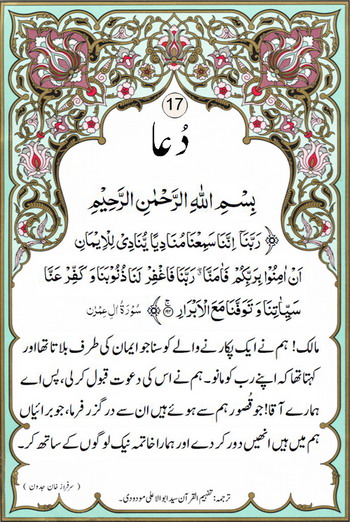 17
دُعا
بِسْمِ اللهِ الرَّحْمٰنِ الرَّحِيْمِ
﴿ رَبَّنَآ اِنَّنَا سَمِعْنَا مُنَادِيًا يُّنَادِيْ لِلْاِيْمَانِ
اَنْ اٰمِنُوْا بِرَبِّكُمْ فَاٰمَنَّا ۖ رَبَّنَا فَاغْفِرْ لَنَا ذُنُوْبَنَا وَ كَفِّرْ عَنَّا
سَيِّاٰتِنَا وَ تَوَفَّنَا مَعَ الْاَبْرَارِ ﴾ سُوْرَةُ اٰلِ عِمْرٰن
مالک! ہم نے ایک پکارنے والے کو سنا جو ایمان کی طرف بلاتا تھا اور
کہتا تھا کہ اپنے رب کو مانو۔ ہم نے اس کی دعوت قبول کرلی، پس اے
ہمارے آقا! جو قُصور ہم سے ہوئے ہیں ان سے درگزر فرما، جو برائیاں
ہم میں ہیں انھیں دور کر دے اور ہمارا خاتمہ نیک لوگوں کے ساتھ کر۔
(سرفراز خان جدون)
ترجمہ: تفہیم القرآن سید ابوالاعلیٰ مودودی۔